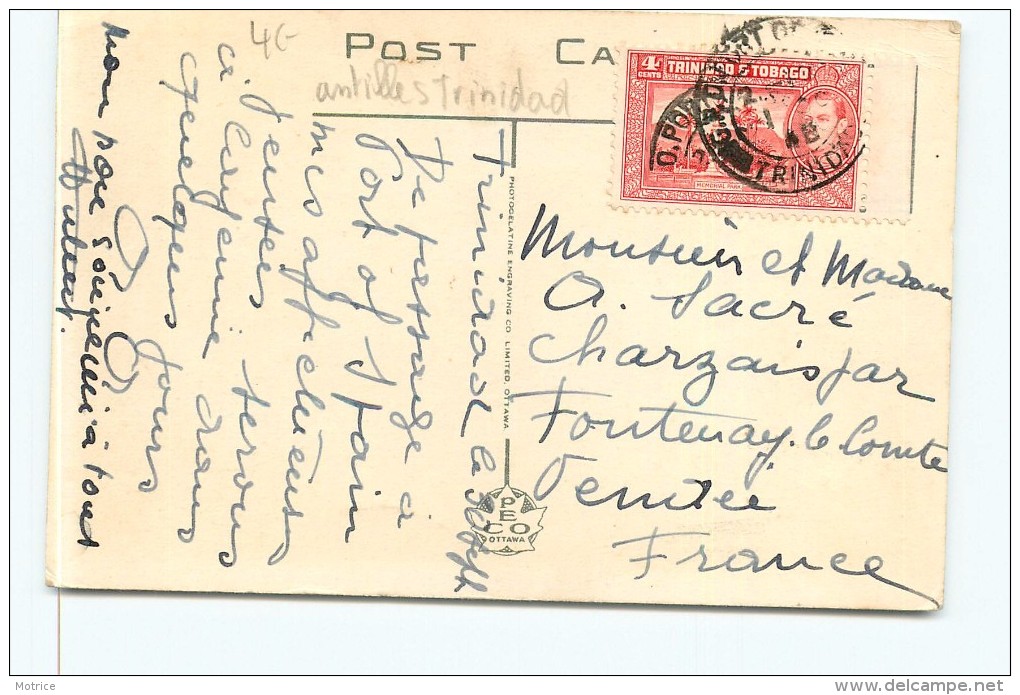 4€
POST CA
antilles Trinidad
4
CENTS
TRINIDAD & TOBAGO
MEMORIAL PARK
TRINIDAD
48
Trinidad le
De passage à
Port of Spain
mes affectueuses
pensées serons
à Cayenne dans
quelques jours
mon bon à tous
PHOTOGELATINE ENGRAVING CO. LIMITED, OTTAWA
PECO
OTTAWA
Monsieur et Madame
A. Sacré
Charzais par
Fontenay-le Comte
Vendée
France
Motrice
www.delcampe.net